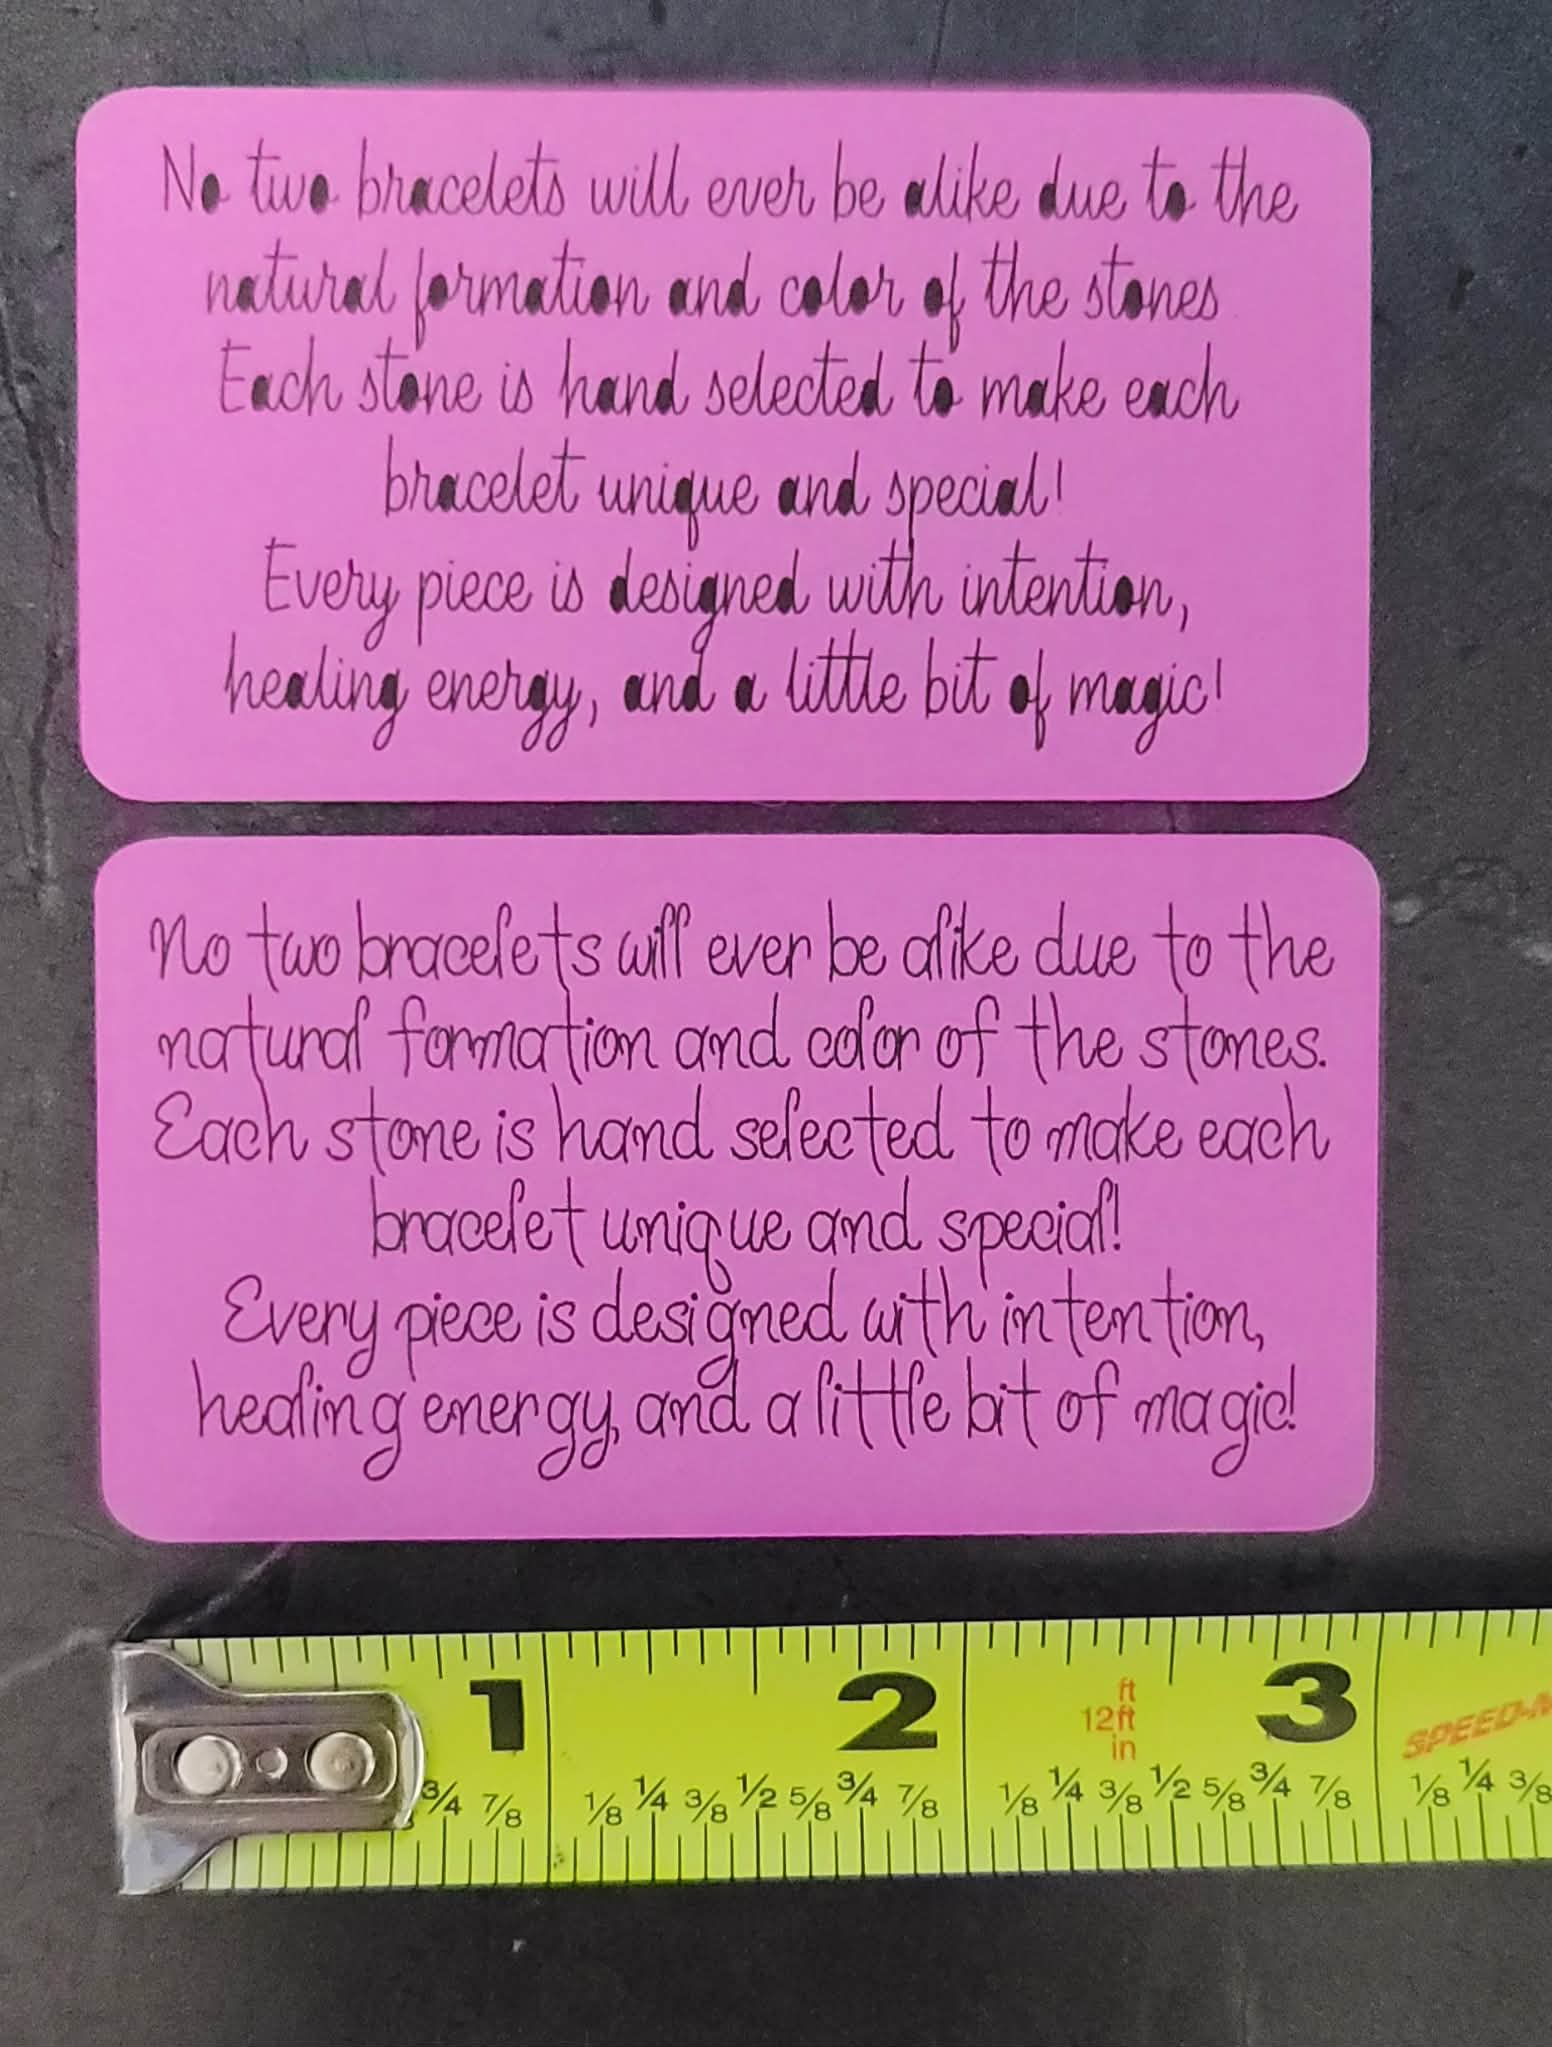 No two bracelets will ever be alike due to the
natural formation and color of the stones
Each stone is hand selected to make each
bracelet unique and special!
Every piece is designed with intention,
healing energy, and a little bit of magic!
No two bracelets will ever be alike due to the
natural formation and color of the stones.
Each stone is hand selected to make each
bracelet unique and special!
Every piece is designed with intention,
healing energy, and a little bit of magic!
1 2 ft 3
12ft SPEED-
in
3/4 7/8 1/8 1/4 3/8 1/2 5/8 3/4 7/8 1/8 1/4 3/8 1/2 5/8 3/4 7/8 1/8 1/4 3/8